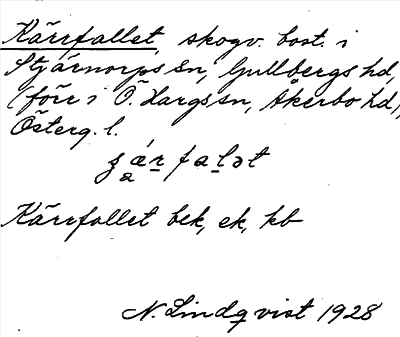 Kärrfallet, skogv. bost. i
Stjärnorps sn, Gullbergs hd,
(förr i Ö. Hargs sn, Åkerbo hd),
Österg. l.
Kärrfallet bek, ek, kb
N. Lindqvist 1928